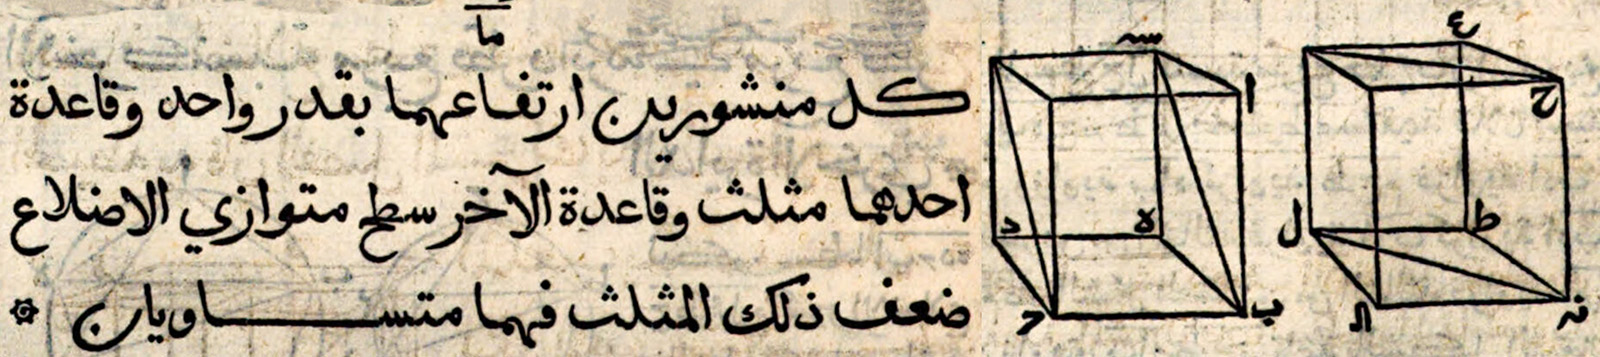 ما
كل منشورين ارتفاعهما بقدر واحد وقاعدة
احدهما مثلث وقاعدة الآخر سطح متوازي الاضلاع
ضعف ذلك المثلث فهما متســـــاويان
س ا
د ه
ح ب
ع
ح
ل ط
ن